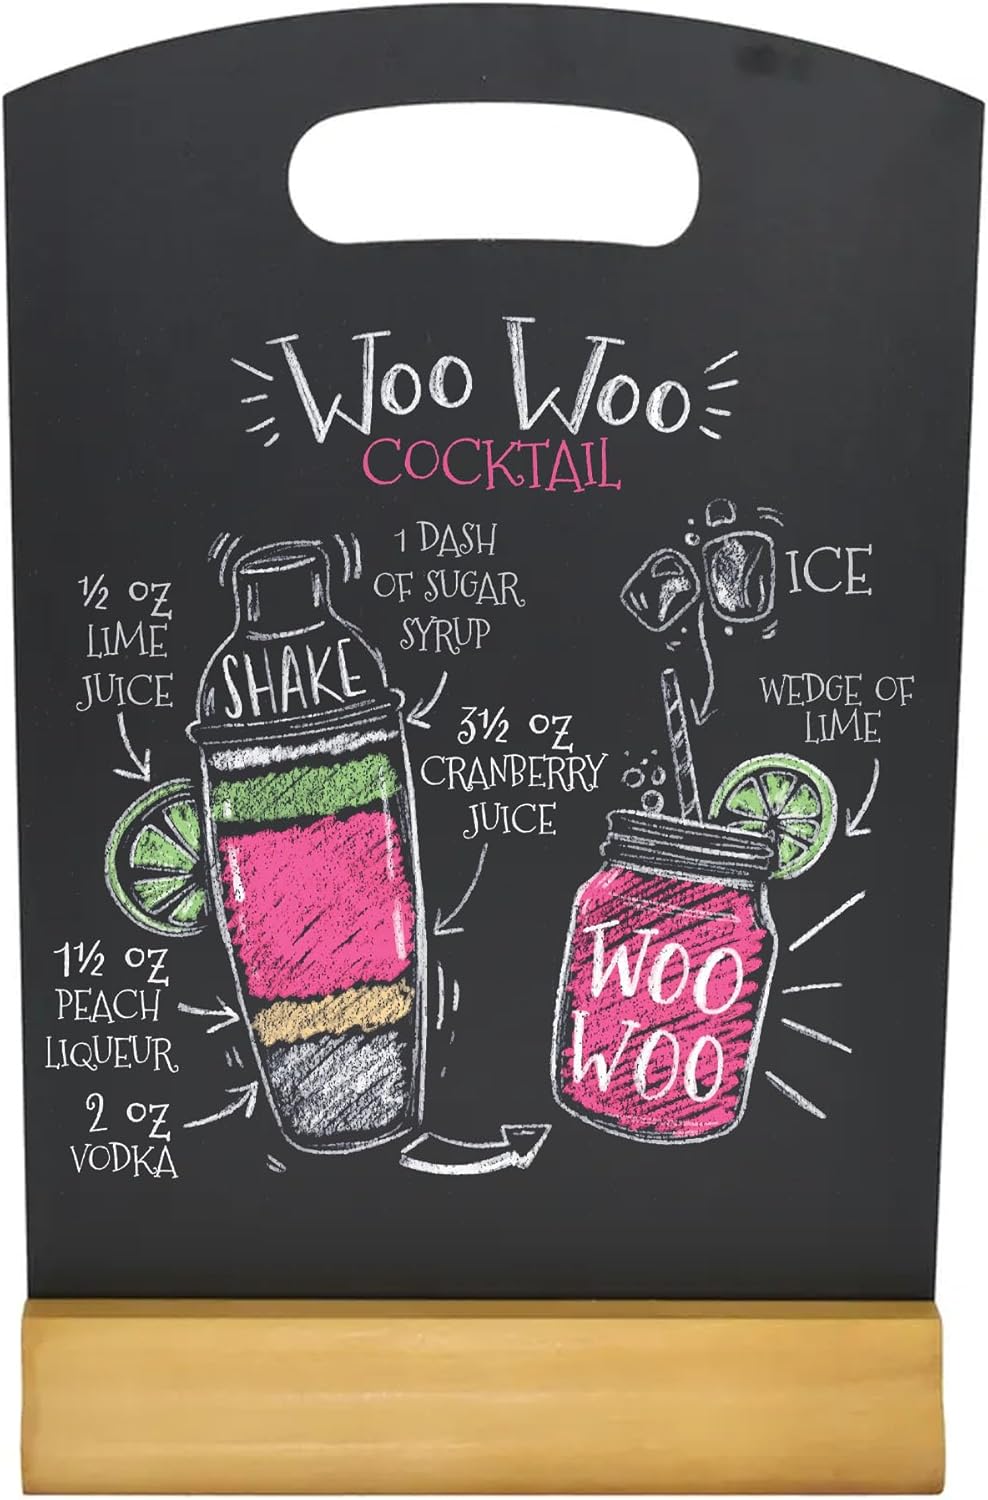 Woo Woo
COCKTAIL
1 DASH
OF SUGAR
SYRUP
ICE
½ OZ
LIME
JUICE
SHAKE
WEDGE OF
LIME
3½ OZ
CRANBERRY
JUICE
1½ OZ
PEACH
LIQUEUR
WOO
WOO
2 OZ
VODKA